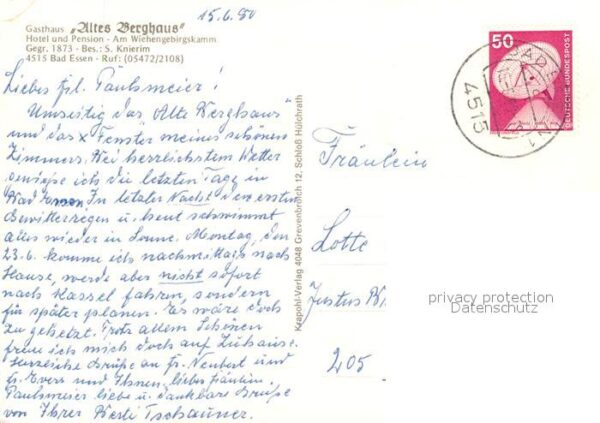 15.6.80
Gasthaus „Altes Berghaus“
Hotel und Pension - Am Wiehengebirgskamm
Gegr. 1873 - Bes.: S. Knierim
4515 Bad Essen - Ruf: (05472/2108)
Liebes Frl. Paulsmeier!
Umseitig das „Alte Berghaus“
und das x Fenster meines schönen
Zimmers. Bei herrlichstem Wetter
genieße ich die letzten Tage in
Bad Essen. In letzter Nacht den ersten
Gewitterregen u. heut schwimmt
alles wieder in Sonne. Montag, den
23.6. komme ich nachmittags nach
Hause, werde aber nicht sofort
nach Kassel fahren, sondern
für später planen. Es wäre doch
zu gehetzt. Trotz allem Schönen
freue ich mich doch auf Zuhause.
Herzliche Grüße an Fr. Neubert und
Fr. Evers und Ihnen, liebes Fräulein
Paulsmeier liebe u. dankbare Grüße
von Ihrer Werti Tschauner.
Krapohl-Verlag 4048 Grevenbroich 12, Schloß Hülchrath
50
DEUTSCHE BUNDESPOST
4515
Fräulein
Lotte
Justus
205
privacy protection
Datenschutz